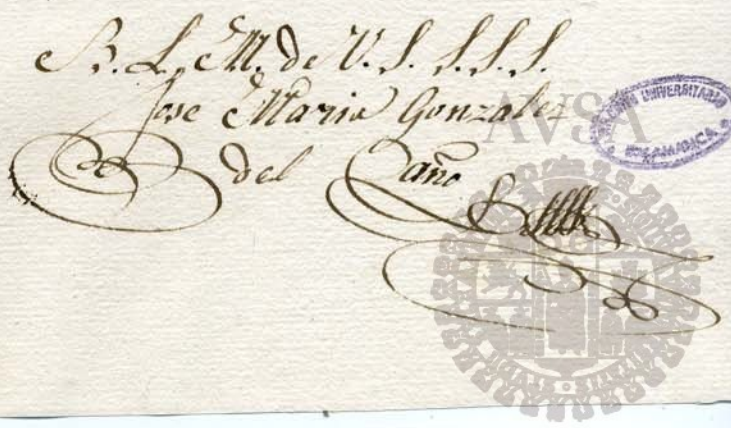 B. L. M. de V. S. S. S. S.
Jose Maria Gonzalez
del Caño
AVSA
ARCHIVO UNIVERSITARIO
SALAMANCA